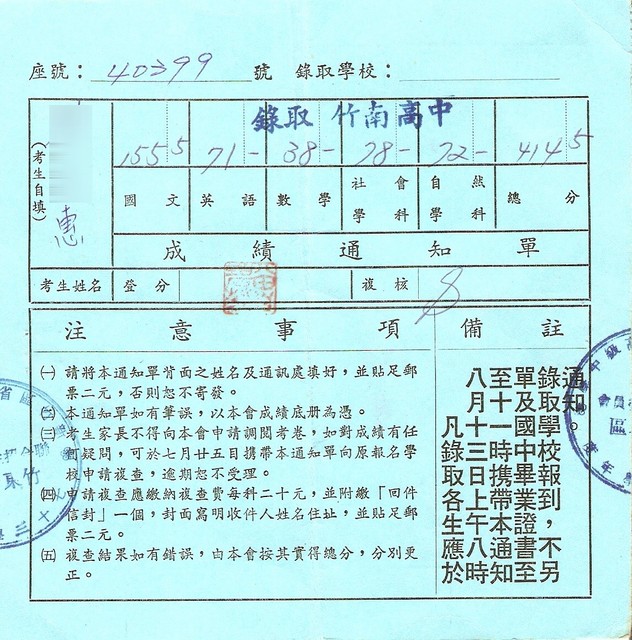 座號：40399號 錄取學校：
錄取 竹南高中
155 5 71- 38- 78- 72- 414 5
國文 英語 數學 社會學科 自然學科 總分
（考生自填）
惠
成績通知單
考生姓名 登分 複核
注意事項 備註
㈠請將本通知單背面之姓名及通訊處填好，並貼足郵
票二元，否則恕不寄發。
㈡本通知單如有筆誤，以本會成績底册為憑。
㈢考生家長不得向本會申請調閱考卷，如對成績有任
何疑問，可於七月廿五日携帶本通知單向原報名學
校申請複查，逾期恕不受理。
㈣申請複查應繳納複查費每科二十元，並附繳「回件
信封」一個，封面寫明收件人姓名住址，並貼足郵
票二元。
㈤複查結果如有錯誤，由本會按其實得總分，分別更
正。
凡錄取各生應於
八月十三日上午八時
至十一時携帶本通知
單及國中畢業證書至
錄取學校報到，不另
通知。